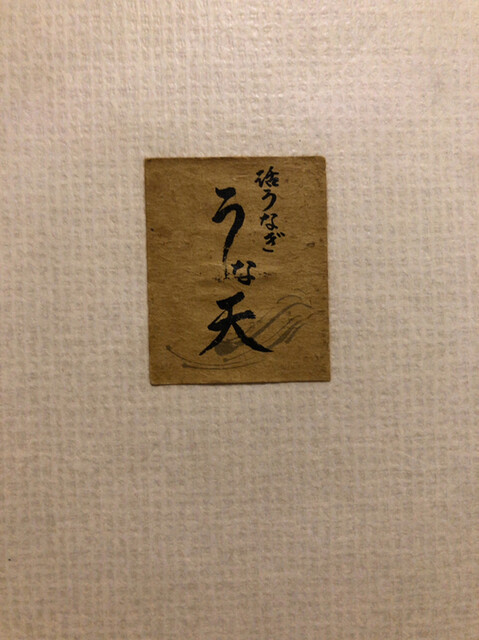 活うなぎ
うな天